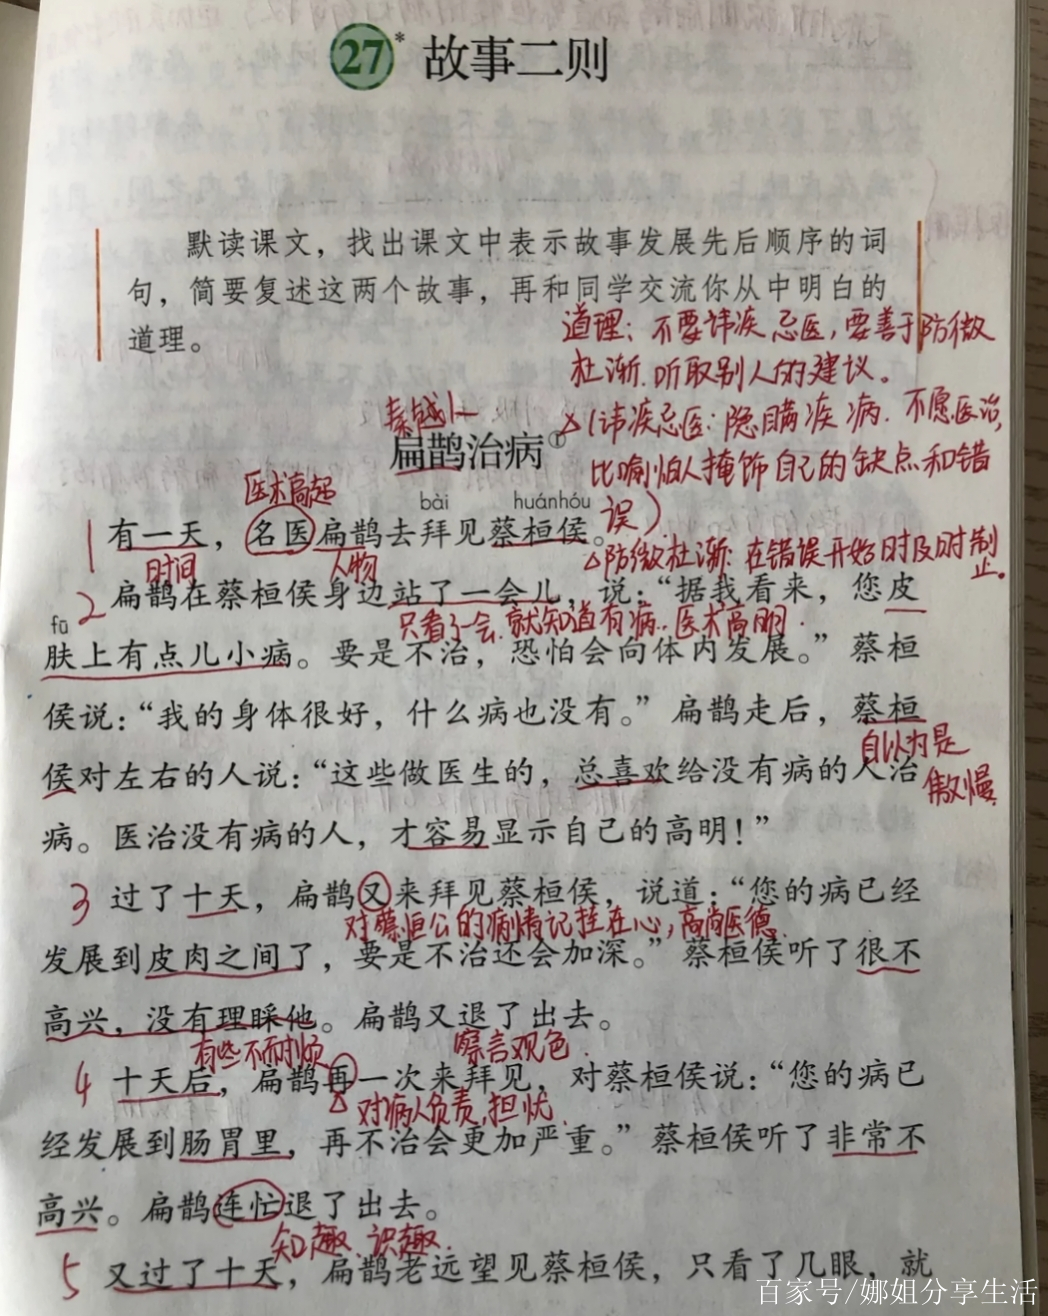 27* 故事二则
默读课文，找出课文中表示故事发展先后顺序的词
句，简要复述这两个故事，再和同学交流你从中明白的
道理。
道理：不要讳疾忌医，要善于防微
杜渐.听取别人的建议。
秦越人
△(讳疾忌医：隐瞒疾病.不愿医治,
扁鹊治病①
比喻怕人掩饰自己的缺点和错
误）
医术高超
bài huánhóu
1 有一天，名医扁鹊去拜见蔡桓侯。
△防微杜渐：在错误开始时及时制
止。
时间 人物
2 扁鹊在蔡桓侯身边站了一会儿，说：“据我看来，您皮
只看了一会.就知道有病..医术高明.
fū
肤上有点儿小病。要是不治，恐怕会向体内发展。”蔡桓
侯说：“我的身体很好，什么病也没有。”扁鹊走后，蔡桓
自以为是
傲慢
侯对左右的人说：“这些做医生的，总喜欢给没有病的人治
病。医治没有病的人，才容易显示自己的高明！”
3 过了十天，扁鹊又来拜见蔡桓侯，说道：“您的病已经
对蔡恒公的病情记挂在心，高尚医德.
发展到皮肉之间了，要是不治还会加深。”蔡桓侯听了很不
高兴，没有理睬他。扁鹊又退了出去。
有些不耐烦 察言观色.
4 十天后，扁鹊再一次来拜见，对蔡桓侯说：“您的病已
△ 对病人负责,担忧.
经发展到肠胃里，再不治会更加严重。”蔡桓侯听了非常不
高兴。扁鹊连忙退了出去。
知趣、识趣.
5 又过了十天，扁鹊老远望见蔡桓侯，只看了几眼，就
百家号/娜姐分享生活